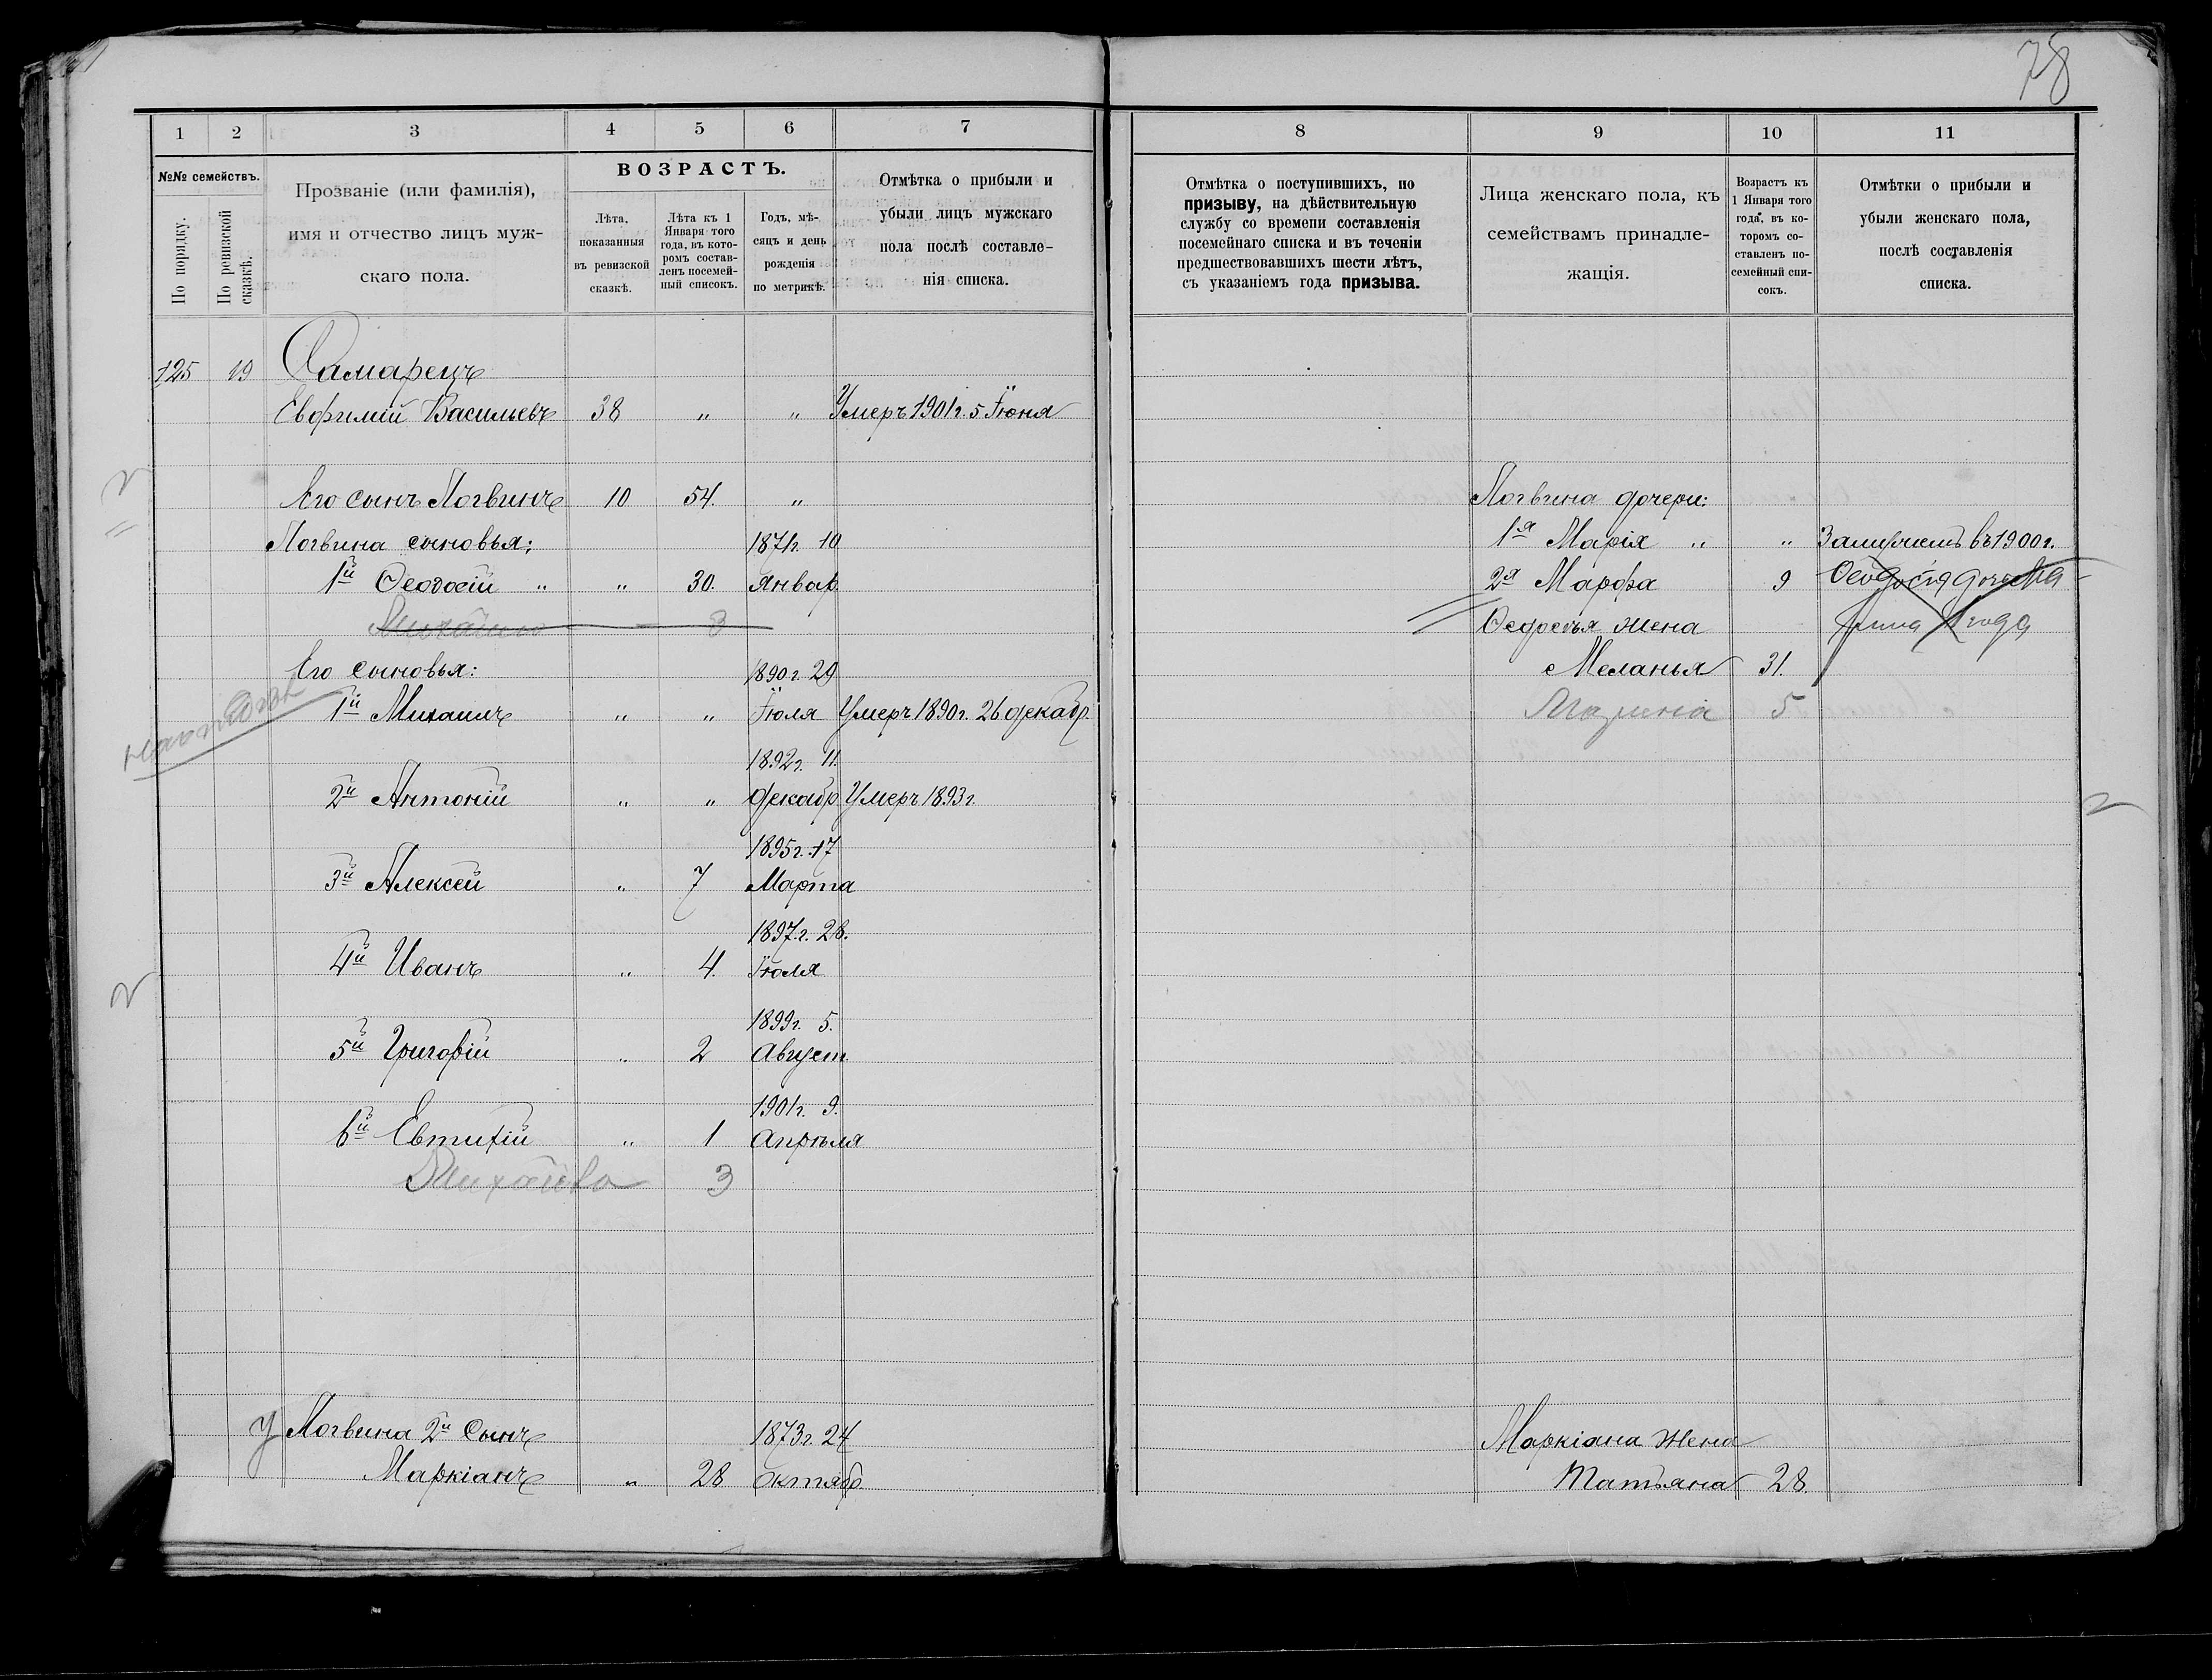 78
1 2 3 4 5 6 7
№№ семействъ.
По порядку.
По ревизской сказкѣ.
Прозваніе (или фамилія),
имя и отчество лицъ муж-
скаго пола.
ВОЗРАСТЪ.
Лѣта,
показанныя
въ ревизской
сказкѣ.
Лѣта къ 1
Января того
года, въ кото-
ромъ состав-
ленъ посемей-
ный списокъ.
Годъ, мѣ-
сяцъ и день
рожденія
по метрикѣ.
Отмѣтка о прибыли и
убыли лицъ мужскаго
пола послѣ составле-
нія списка.
125 19 Самарецъ
Евфимій Васильевъ 38 " " Умеръ 1901г. 5 Іюня
Его сынъ Логвинъ 10 54. "
Логвина сыновья: 1871г. 10
1й Ѳеодосій " " 30. Январ.
Михаило 3
Его сыновья: 1890г. 29
1й Михаилъ " " Іюля Умеръ 1890г. 26 декабр.
1892г. 11.
2й Антоній " " декабр. Умеръ 1893г.
1895г. 17
3й Алексей " 7 Марта
1897г. 28.
4й Иванъ " 4. Іюля
1899г. 5.
5й Григорій " 2 Август.
1901г. 9.
6й Евтихій " 1 Апрѣля
Михайло 3
У Логвина 2й Сынъ 1873г. 24
Маркіанъ " 28 Октябр.
8 9 10 11
Отмѣтка о поступившихъ, по
призыву, на дѣйствительную
службу со времени составленія
посемейнаго списка и въ теченіи
предшествовавшихъ шести лѣтъ,
съ указаніемъ года призыва.
Лица женскаго пола, къ
семействамъ принадле-
жащія.
Возрастъ къ
1 Января того
года, въ ко-
торомъ со-
ставленъ по-
семейный спи-
сокъ.
Отмѣтки о прибыли и
убыли женскаго пола,
послѣ составленія
списка.
Логвина дочери:
1я Марія " " Замужемъ въ 1900г.
2я Марфа 9 Ѳеодосія дочь
Ѳедосья жена года
Меланья 31.
5
Маркіана жена
Татьяна 28.